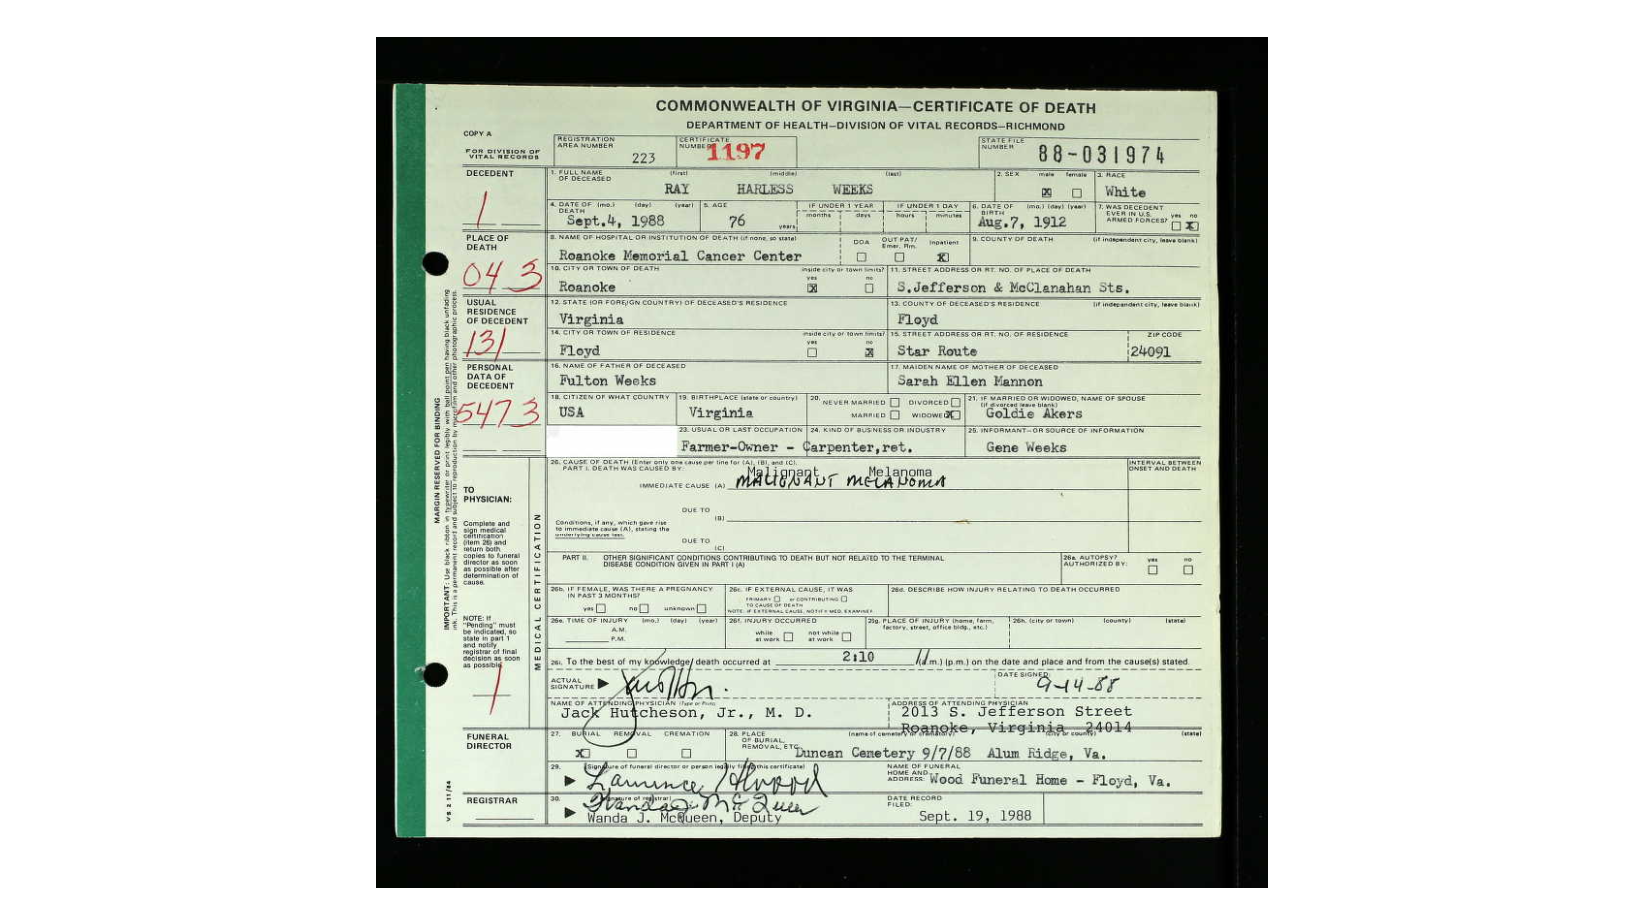 COMMONWEALTH OF VIRGINIA—CERTIFICATE OF DEATH
DEPARTMENT OF HEALTH—DIVISION OF VITAL RECORDS—RICHMOND
COPY A
FOR DIVISION OF VITAL RECORDS
REGISTRATION AREA NUMBER 223
CERTIFICATE NUMBER 1197
STATE FILE NUMBER 88-031974
DECEDENT
1
1. FULL NAME OF DECEASED (first) (middle) (last)
RAY HARLESS WEEKS
2. SEX male female
X
3. RACE
White
4. DATE OF DEATH (mo.) (day) (year)
Sept.4, 1988
5. AGE
76 years
IF UNDER 1 YEAR months days
IF UNDER 1 DAY hours minutes
6. DATE OF BIRTH (mo.) (day) (year)
Aug.7, 1912
7. WAS DECEDENT EVER IN U.S. ARMED FORCES? yes no
X
PLACE OF DEATH
04 3
8. NAME OF HOSPITAL OR INSTITUTION OF DEATH (if none, so state)
Roanoke Memorial Cancer Center
DOA OUT PAT/ Emer. Rm. Inpatient
X
9. COUNTY OF DEATH (if independent city, leave blank)
10. CITY OR TOWN OF DEATH inside city or town limits? yes no
Roanoke X
11. STREET ADDRESS OR RT. NO. OF PLACE OF DEATH
S.Jefferson & McClanahan Sts.
USUAL RESIDENCE OF DECEDENT
131
12. STATE (OR FOREIGN COUNTRY) OF DECEASED'S RESIDENCE
Virginia
13. COUNTY OF DECEASED'S RESIDENCE (if independent city, leave blank)
Floyd
14. CITY OR TOWN OF RESIDENCE inside city or town limits? yes no
Floyd X
15. STREET ADDRESS OR RT. NO. OF RESIDENCE ZIP CODE
Star Route 24091
PERSONAL DATA OF DECEDENT
5473
16. NAME OF FATHER OF DECEASED
Fulton Weeks
17. MAIDEN NAME OF MOTHER OF DECEASED
Sarah Ellen Mannon
18. CITIZEN OF WHAT COUNTRY
USA
19. BIRTHPLACE (state or country)
Virginia
20. NEVER MARRIED DIVORCED
MARRIED WIDOWED X
21. IF MARRIED OR WIDOWED, NAME OF SPOUSE
(if divorced leave blank)
Goldie Akers
23. USUAL OR LAST OCCUPATION 24. KIND OF BUSINESS OR INDUSTRY
Farmer-Owner - Carpenter,ret.
25. INFORMANT—OR SOURCE OF INFORMATION
Gene Weeks
26. CAUSE OF DEATH (Enter only one cause per line for (A), (B), and (C).
PART I. DEATH WAS CAUSED BY:
INTERVAL BETWEEN ONSET AND DEATH
Malignant Melanoma
IMMEDIATE CAUSE (A) MALIGNANT MELANOMA
DUE TO
(B)
Conditions, if any, which gave rise to immediate cause (A), stating the underlying cause last.
DUE TO
(C)
TO PHYSICIAN:
Complete and sign medical certification (item 26) and return both copies to funeral director as soon as possible after determination of cause.
NOTE: If "Pending" must be indicated, so state in part 1 and notify registrar of final decision as soon as possible
1
MEDICAL CERTIFICATION
MARGIN RESERVED FOR BINDING
PART II. OTHER SIGNIFICANT CONDITIONS CONTRIBUTING TO DEATH BUT NOT RELATED TO THE TERMINAL
DISEASE CONDITION GIVEN IN PART I (A)
26a. AUTOPSY? AUTHORIZED BY: yes no
26b. IF FEMALE, WAS THERE A PREGNANCY IN PAST 3 MONTHS?
yes no unknown
26c. IF EXTERNAL CAUSE, IT WAS
PRIMARY or CONTRIBUTING
TO CAUSE OF DEATH
NOTE: IF EXTERNAL CAUSE, NOTIFY MED. EXAMINER
26d. DESCRIBE HOW INJURY RELATING TO DEATH OCCURRED
26e. TIME OF INJURY (mo.) (day) (year)
A.M.
P.M.
26f. INJURY OCCURRED
while at work not while at work
26g. PLACE OF INJURY (home, farm, factory, street, office bldg., etc.)
26h. (city or town) (county) (state)
26i. To the best of my knowledge, death occurred at 2:10 (a.m.) (p.m.) on the date and place and from the cause(s) stated.
ACTUAL SIGNATURE
DATE SIGNED:
9-14-88
NAME OF ATTENDING PHYSICIAN (Type or Print)
Jack Hutcheson, Jr., M. D.
ADDRESS OF ATTENDING PHYSICIAN
2013 S. Jefferson Street
Roanoke, Virginia 24014
FUNERAL DIRECTOR
27. BURIAL REMOVAL CREMATION
X
28. PLACE OF BURIAL, REMOVAL, ETC. (name of cemetery or crematory) (city or county) (state)
Duncan Cemetery 9/7/88 Alum Ridge, Va.
29. (Signature of funeral director or person legally filing this certificate)
NAME OF FUNERAL HOME AND ADDRESS: Wood Funeral Home - Floyd, Va.
REGISTRAR
30. (Signature of registrar)
Wanda J. McQueen
Wanda J. McQueen, Deputy
DATE RECORD FILED:
Sept. 19, 1988
VS 2 11/84